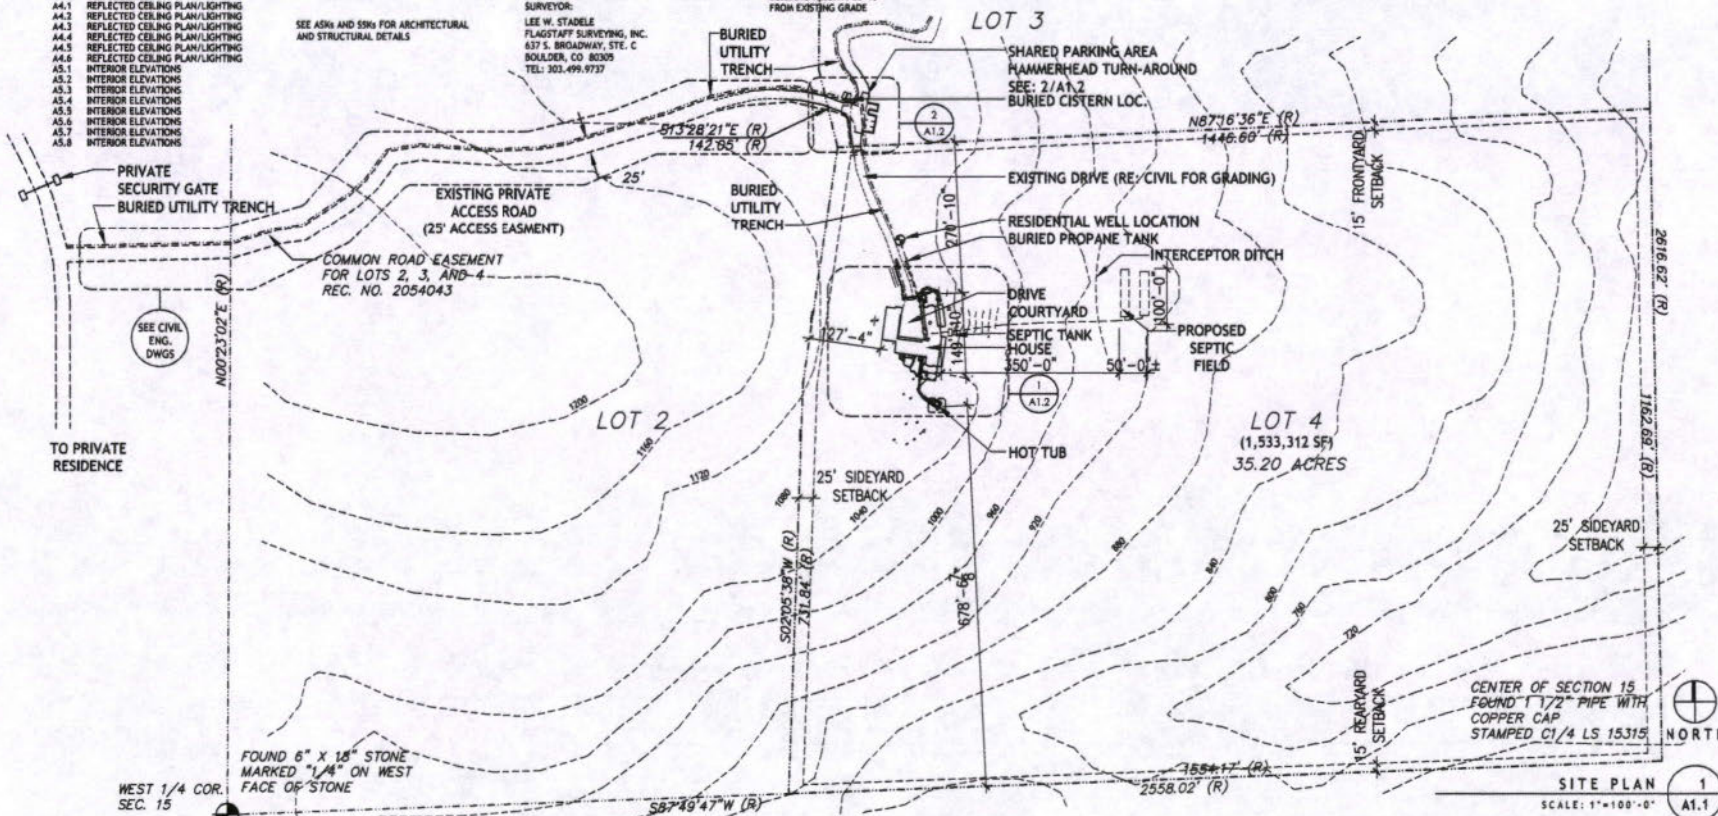 A4.1 REFLECTED CEILING PLAN/LIGHTING
A4.2 REFLECTED CEILING PLAN/LIGHTING
A4.3 REFLECTED CEILING PLAN/LIGHTING
A4.4 REFLECTED CEILING PLAN/LIGHTING
A4.5 REFLECTED CEILING PLAN/LIGHTING
A4.6 REFLECTED CEILING PLAN/LIGHTING
A5.1 INTERIOR ELEVATIONS
A5.2 INTERIOR ELEVATIONS
A5.3 INTERIOR ELEVATIONS
A5.4 INTERIOR ELEVATIONS
A5.5 INTERIOR ELEVATIONS
A5.6 INTERIOR ELEVATIONS
A5.7 INTERIOR ELEVATIONS
A5.8 INTERIOR ELEVATIONS
SEE ASKs AND SSKs FOR ARCHITECTURAL
AND STRUCTURAL DETAILS
SURVEYOR:
LEE W. STADELE
FLAGSTAFF SURVEYING, INC.
637 S. BROADWAY, STE. C
BOULDER, CO 80305
TEL: 303.499.9737
FROM EXISTING GRADE
LOT 3
BURIED
UTILITY
TRENCH
SHARED PARKING AREA
HAMMERHEAD TURN-AROUND
SEE: 2/A1.2
BURIED CISTERN LOC.
2
A1.2
S13°28'21"E (R)
142.05' (R)
N87°16'36"E (R)
1446.60' (R)
15' FRONTYARD
SETBACK
PRIVATE
SECURITY GATE
BURIED UTILITY TRENCH
25'
EXISTING PRIVATE
ACCESS ROAD
(25' ACCESS EASMENT)
BURIED
UTILITY
TRENCH
EXISTING DRIVE (RE: CIVIL FOR GRADING)
270'-10"
RESIDENTIAL WELL LOCATION
BURIED PROPANE TANK
INTERCEPTOR DITCH
2616.62' (R)
COMMON ROAD EASEMENT
FOR LOTS 2, 3, AND 4
REC. NO. 2054043
N00°23'02"E (R)
SEE CIVIL
ENG.
DWGS
DRIVE
COURTYARD
100'-0"
127'-4"
149'-10"
SEPTIC TANK
HOUSE
350'-0"
50'-0"±
PROPOSED
SEPTIC
FIELD
1
A1.2
1200
LOT 2
1160
1120
LOT 4
(1,533,312 SF)
35.20 ACRES
1162.69' (R)
TO PRIVATE
RESIDENCE
HOT TUB
25' SIDEYARD
SETBACK
1080
1040
1000
960
920
880
840
800
760
720
25' SIDEYARD
SETBACK
S02°05'38"W (R)
731.84' (R)
15' REARYARD
SETBACK
CENTER OF SECTION 15
FOUND 1 1/2" PIPE WITH
COPPER CAP
STAMPED C1/4 LS 15315
NORTH
FOUND 6" X 18" STONE
MARKED "1/4" ON WEST
FACE OF STONE
WEST 1/4 COR.
SEC. 15
S87°49'47"W (R)
1554.17' (R)
2558.02' (R)
SITE PLAN
SCALE: 1"=100'-0"
1
A1.1